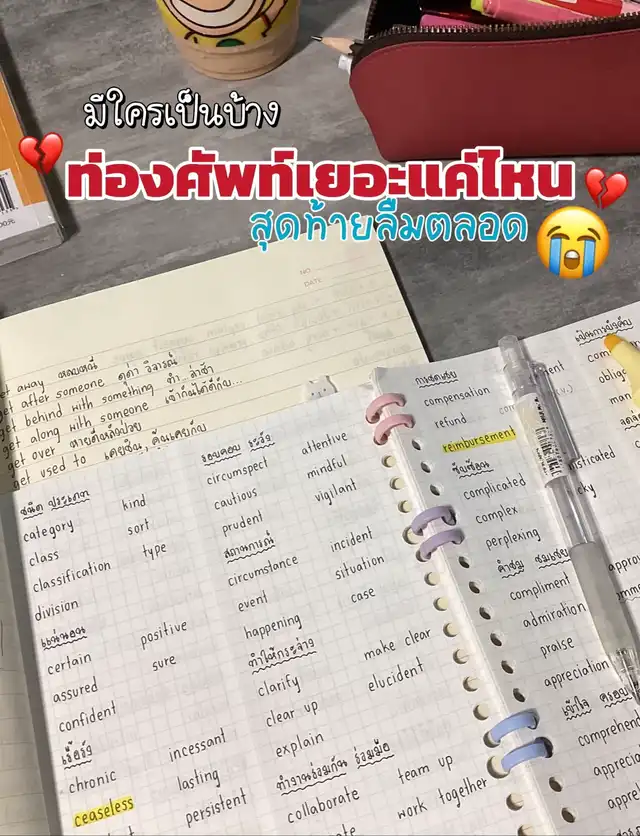 มีใครเป็นบ้าง
ท่องศัพท์เยอะแค่ไหน
สุดท้ายลืมตลอด
NO.
DATE
get away หลบหนี
get after someone ดุด่า วิจารณ์
get behind with something ทำ.. ล่าช้า
get along with someone เข้ากันได้ดีกับ...
get over หายดีหลังป่วย
get used to เคยชิน, คุ้นเคยกับ
ชนิด ประเภท
category kind
class sort
classification type
division
แน่นอน
certain positive
assured sure
confident
เรื้อรัง
chronic incessant
ceaseless lasting
persistent
รอบคอบ ระวัง
circumspect attentive
cautious mindful
prudent vigilant
สถานการณ์
circumstance incident
event situation
happening case
ทำให้กระจ่าง
clarify make clear
clear up elucident
explain
ทำงานร่วมกัน ร่วมมือ
collaborate team up
work together
การชดเชย
compensation
refund
reimbursement
ซับซ้อน
complicated
complex
perplexing
คำชม ชมเชย
compliment
admiration
praise
appreciation
เข้าใจ
comprehend
เป็นการบังคับ